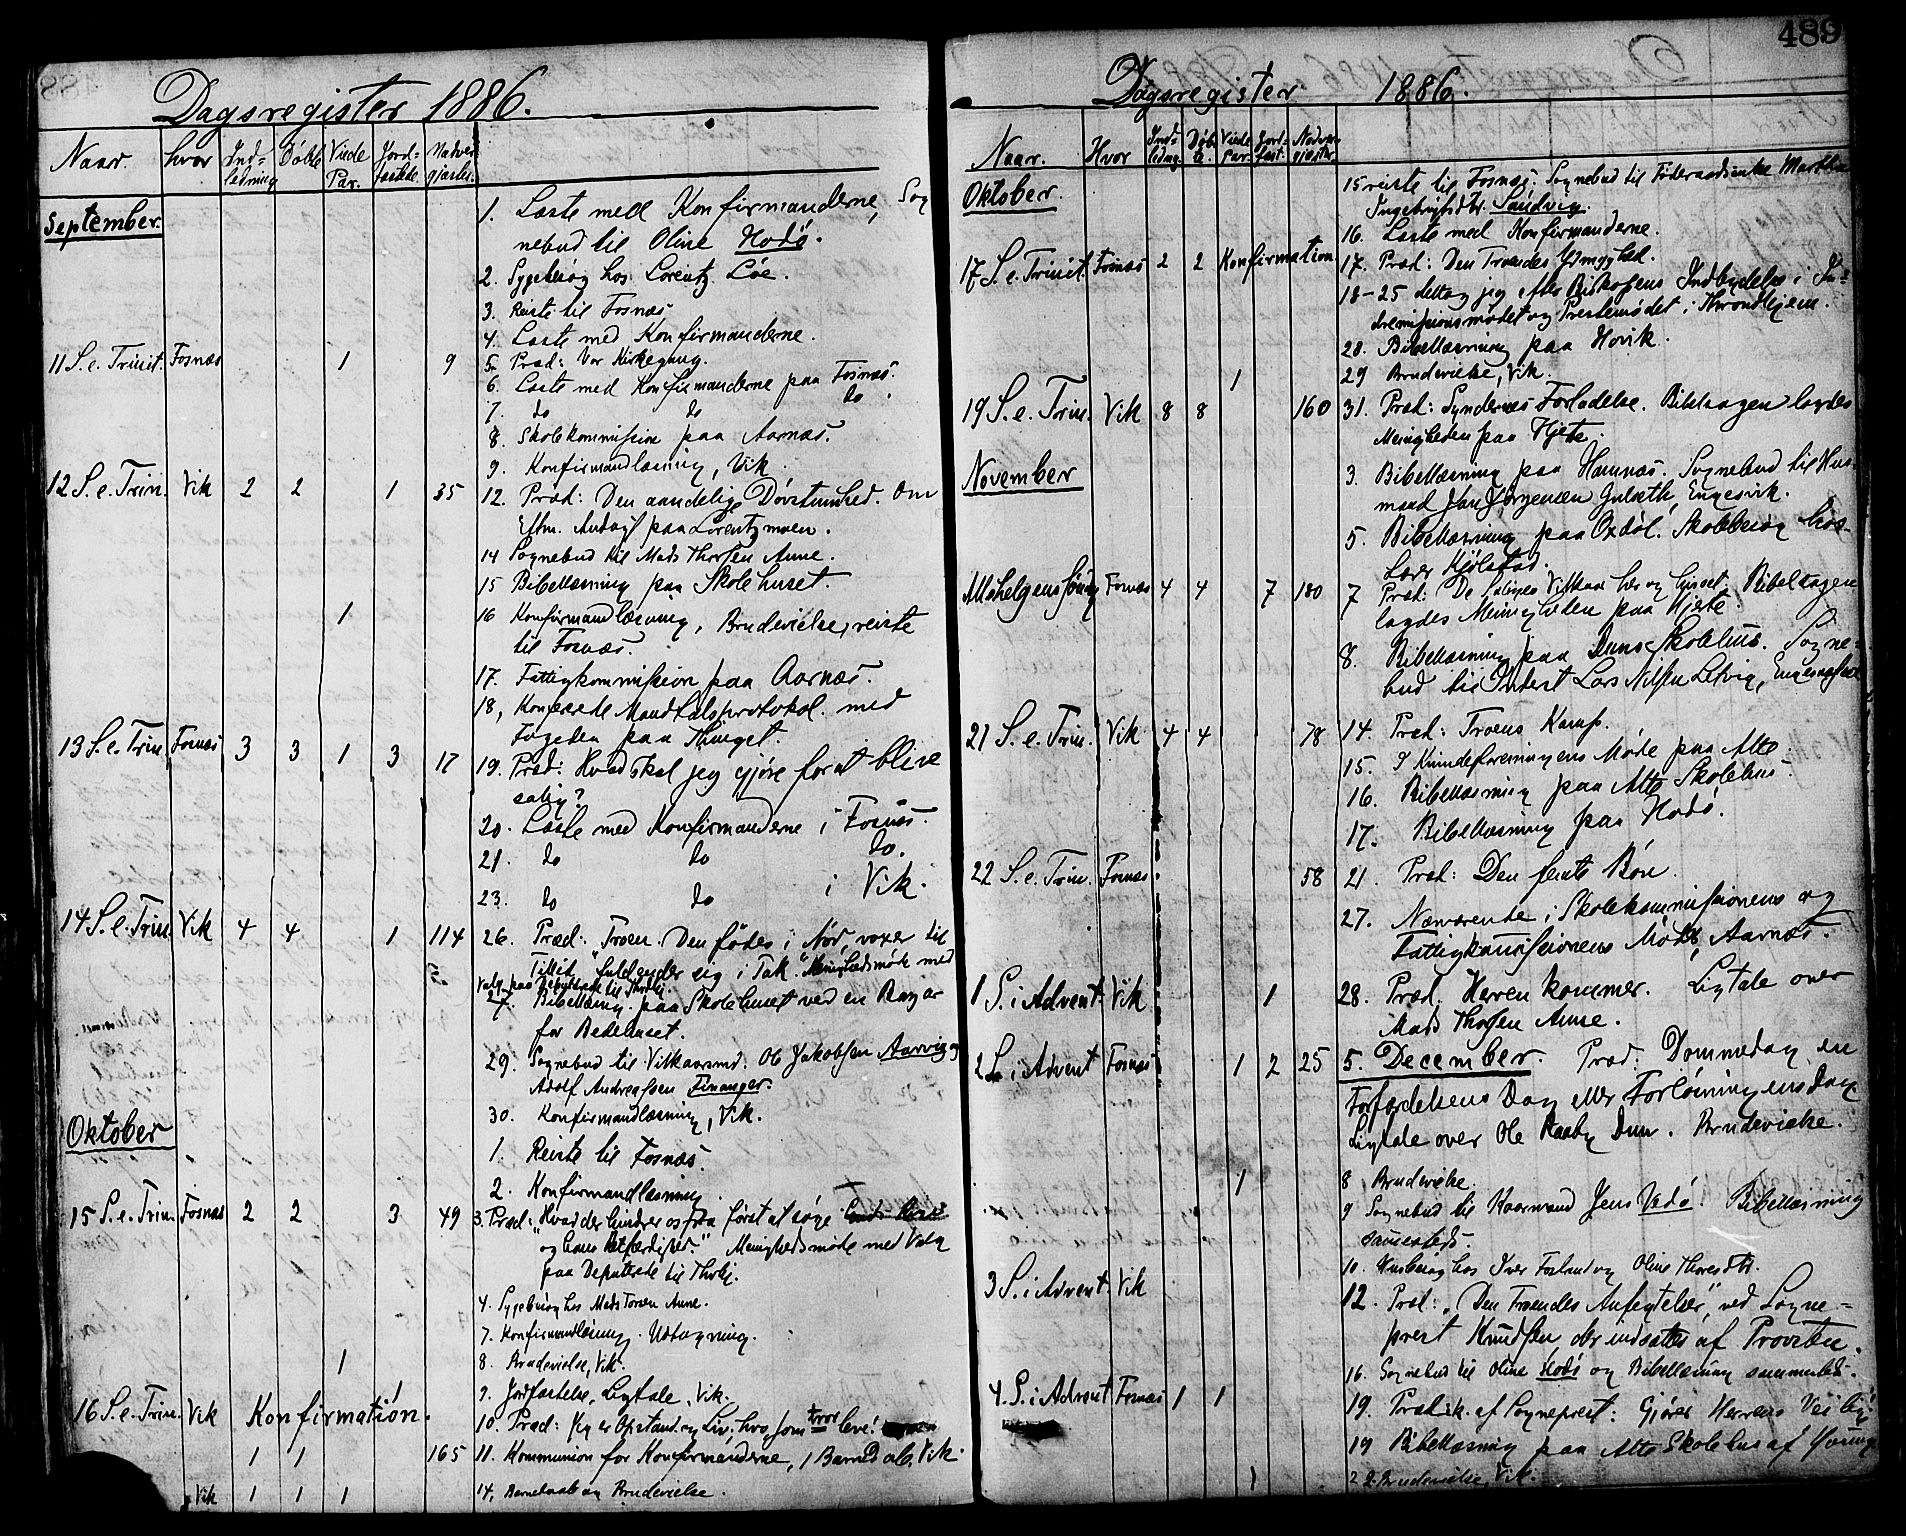 Dagsregister 1886.
Naar. hvor Ind- Døbte Viede Jord- Nadver
ledning Par. fæstede gjæster.
September. 1. Læste med Konfirmanderne, Sog
nebud til Oline Hodø.
2. Sygebesøg hos Lorentz Løe.
3. Reiste til Fosnæs
4. Læste med Konfirmanderne.
11 S. e. Trinit. Fosnæs 1 9 5. Præd: Vor Kirkegang.
6. Læste med Konfirmanderne paa Fosnæs.
7. do do do.
8. Skolekommission paa Aarnæs.
9. Konfirmandlæsning, Vik.
12 S. e. Trin. Vik 2 2 1 35 12. Præd: Den aandelige Døvstumhed. Om
Eftm. Andagt paa Lorentzmoen.
14 Sognebud til Mads Thorsen Aune.
15 Bibellæsning paa Skolehuset
1 16 Konfirmandlæsning, Brudevielse, reiste
til Fosnæs.
17. Fattigkommission paa Aarnæs.
18, Konfererede Mandtalsprotokol med
Fogeden paa Thinget.
13 S. e. Trin. Fosnæs 3 3 1 3 17 19. Præd: Hvad skal jeg gjøre for at blive
salig?
20. Læste med Konfirmanderne i Fosnæs.
21. do do do.
23. do do i Vik.
14 S. e. Trin. Vik 4 4 1 114 26. Præd: "Troen. Den fødes i Nød, voxer til
Tillid, fuldender sig i Tak." Menighedsmøde med
Valg paa Deputerede til Thrhj.
27. Bibellæsng. paa Skolehuset ved en Bazar
for Bedehuset.
29. Sognebud til Vilkaarsmd. Ole Jakobsen Aarvig og
Adolf Andreassen Finanger.
30. Konfirmandlæsning, Vik.
Oktober 1. Reiste til Fosnæs.
2. Konfirmandlæsning.
15 S. e. Trin. Fosnæs 2 2 3 49 3. Præd: "Hvad der hindrer os fra først at søge Guds Rige
og hans Retfærdighed." Menighedsmøde med Valg
paa Deputerede til Thrhj.
4. Sygebesøg hos Mads Torsen Aune.
7. Konfirmandlæsning. Udtagning.
1 8. Brudevielse, Vik.
9. Jordfæstelse, Ligtale, Vik.
16 S. e. Trin. Vik Konfirmation. 10. Præd: Jeg er Opstand. og Liv; hvo som tror leve!
1 1 165 11. Kommunion for Konfirmanderne, 1 Barnedaab, Vik.
Vik 1 1 1 14, Barnedaab og Brudevielse.
489
Dagsregister 1886.
Naar. Hvor Ind- Døb- Viede Jord- Nadver-
ledng. te. Par. fæst. gjæster
Oktober. 15 reiste til Fosnæs; Sognebud til Føderaadsenke Martha
Ingebrigtsdtr. Sandvig.
16. Læste med Konfirmanderne.
17 S. e. Trinit. Fosnæs 2 2 Konfirmation 17. Præd: Den Troendes Ydmyghed.
18-25 deltog jeg efter Biskopens Indbydelse i In-
dremissionsmødet og Prestemødet i Throndhjem.
28. Bibellæsning paa Hovik.
1 29 Brudevielse, Vik.
19 S. e. Trin. Vik 8 8 160 31. Præd: Syndernes Forladelse. Bibelsagen lagdes
Menigheden paa Hjerte.
November 3. Bibellæsning paa Hamnæs. Sognebud til Hus-
mand Jan Jørgensen Gulseth, Engesvik.
5. Bibellæsning paa Oxdøl. Skolebesøg hos
Lærer Kjølstad.
Allehelgens søndg Fosnæs 4 4 7 180 7 Præd: De Saliges Vilkaar her og hisset. Bibelsagen
lagdes Menigheden paa Hjerte.
8. Bibellæsning paa Duns Skolehus. Sogne-
bud til Inderst Lars Nilsen Letvig,
21 S. e. Trin. Vik 4 4 78 14. Præd: Troens Kamp.
15. I Kvindeforeningens Møde paa Alte.
16. Bibellæsning paa Alte Skolehus.
17. Bibellæsning paa Hodø.
22 S. e. Trin. Fosnæs. 58 21. Præd: Den femte Bøn.
27. Nærværende i Skolekommissionens og
Fattigkommissionens Møde, Aarnæs.
1 S. i Advent. Vik 1 28. Præd. Herren kommer. Ligtale over
Mads Thorsen Aune.
2 S. i Advent Fosnæs 1 2 25 5. December. Præd: Dommedag en
Forfærdelsens Dag eller Forløsningens Dag
Ligtale over Ole Raaby Dun. Brudevielse.
1 8 Brudevielse.
9 Sognebud til Kaarmand Jens Vedø. Bibellæsning
sammesteds.
10. Husbesøg hos Iver Fosland og Oline Thoresdtr.
3 S. i Advent. Vik 12. Præd: "Den Troendes Anfegtelser" ved Sogne-
prest Knudsen, der indsattes af Provsten.
16. Sognebud til Oline Hodø og Bibellæsning sammesteds.
4. S. i Advent Fosnæs 1 1 19. Prædik. af Sogneprest: Gjører Herrens Vei lig!
19 Bibellæsning paa Alte Skolehus af
1 22. Brudevielse, Vik.